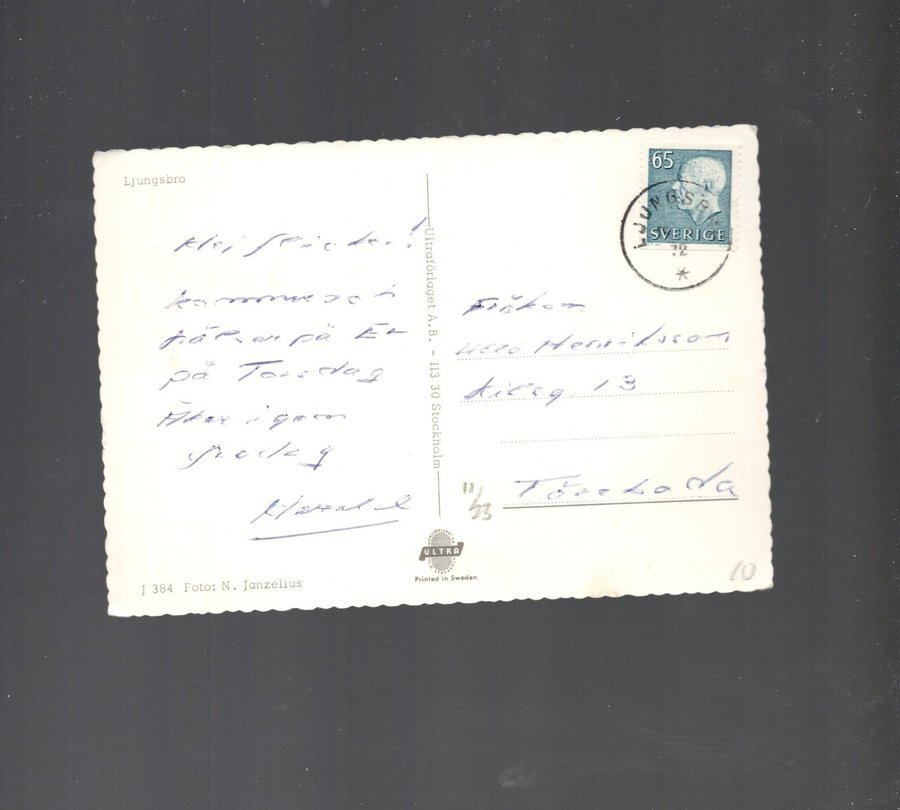 Ljungsbro
Hej
Kommer och
hälsar på Er
på Torsdag
Åker igen
fredag
Ultraförlaget A.B. - 113 30 Stockholm
ULTRA
Printed in Sweden
J 384 Foto: N. Janzelius
65
SVERIGE
LJUNGSBRO
Fröken
Ulla Henriksson
13
Töreboda
11/33
10